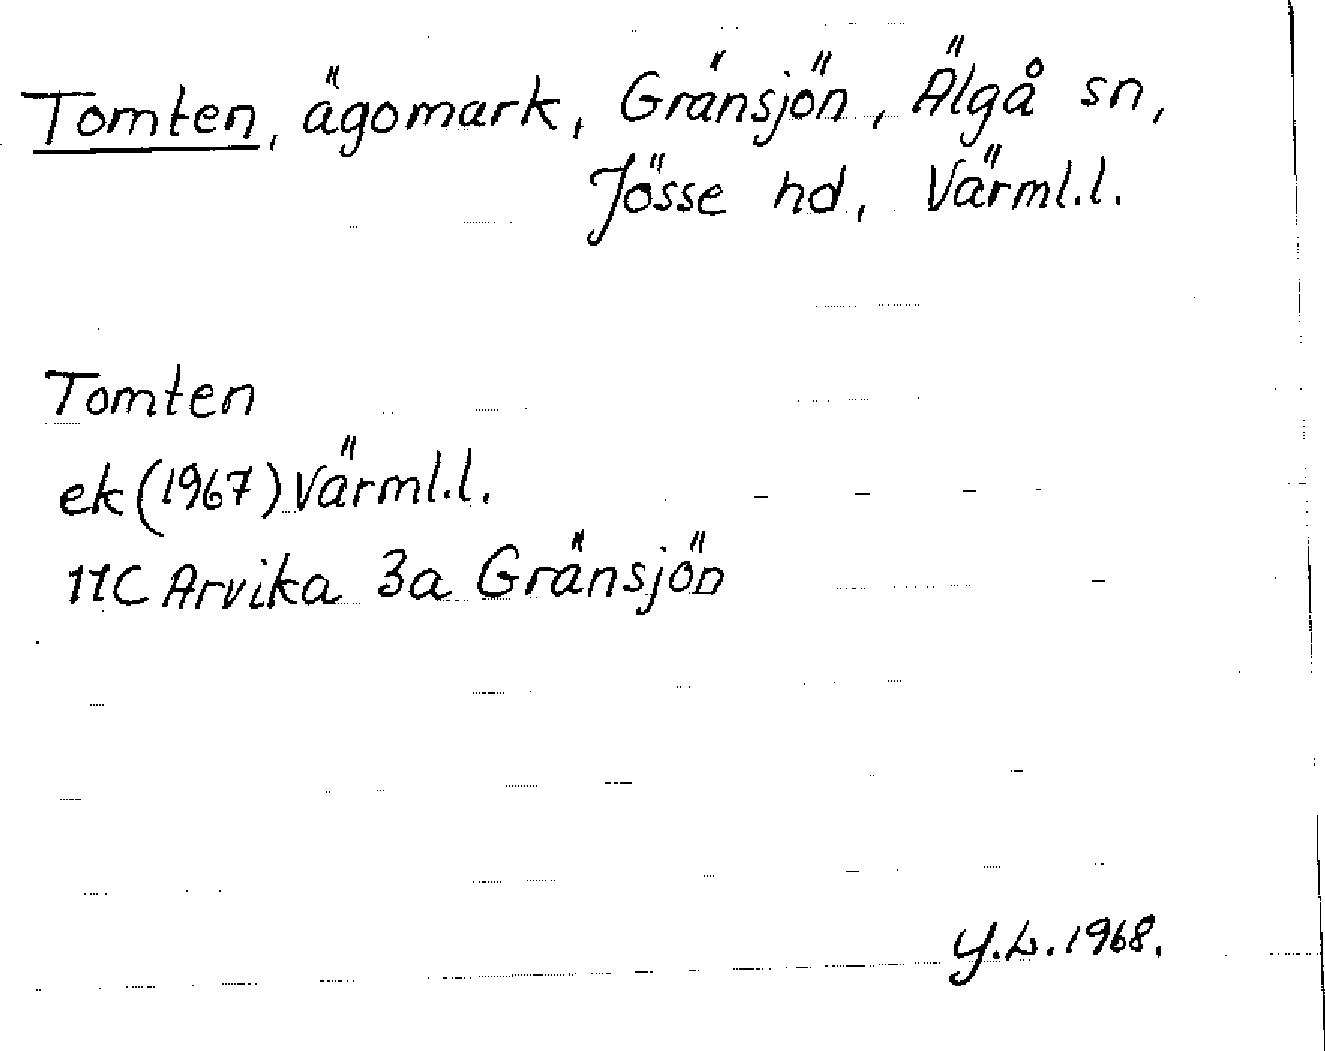 Tomten, ägomark, Gränsjön, Älgå sn,
Jösse hd, Värml.l.
Tomten
ek (1967) Värml.l.
11C Arvika 3a Gränsjön
Y.L. 1968.